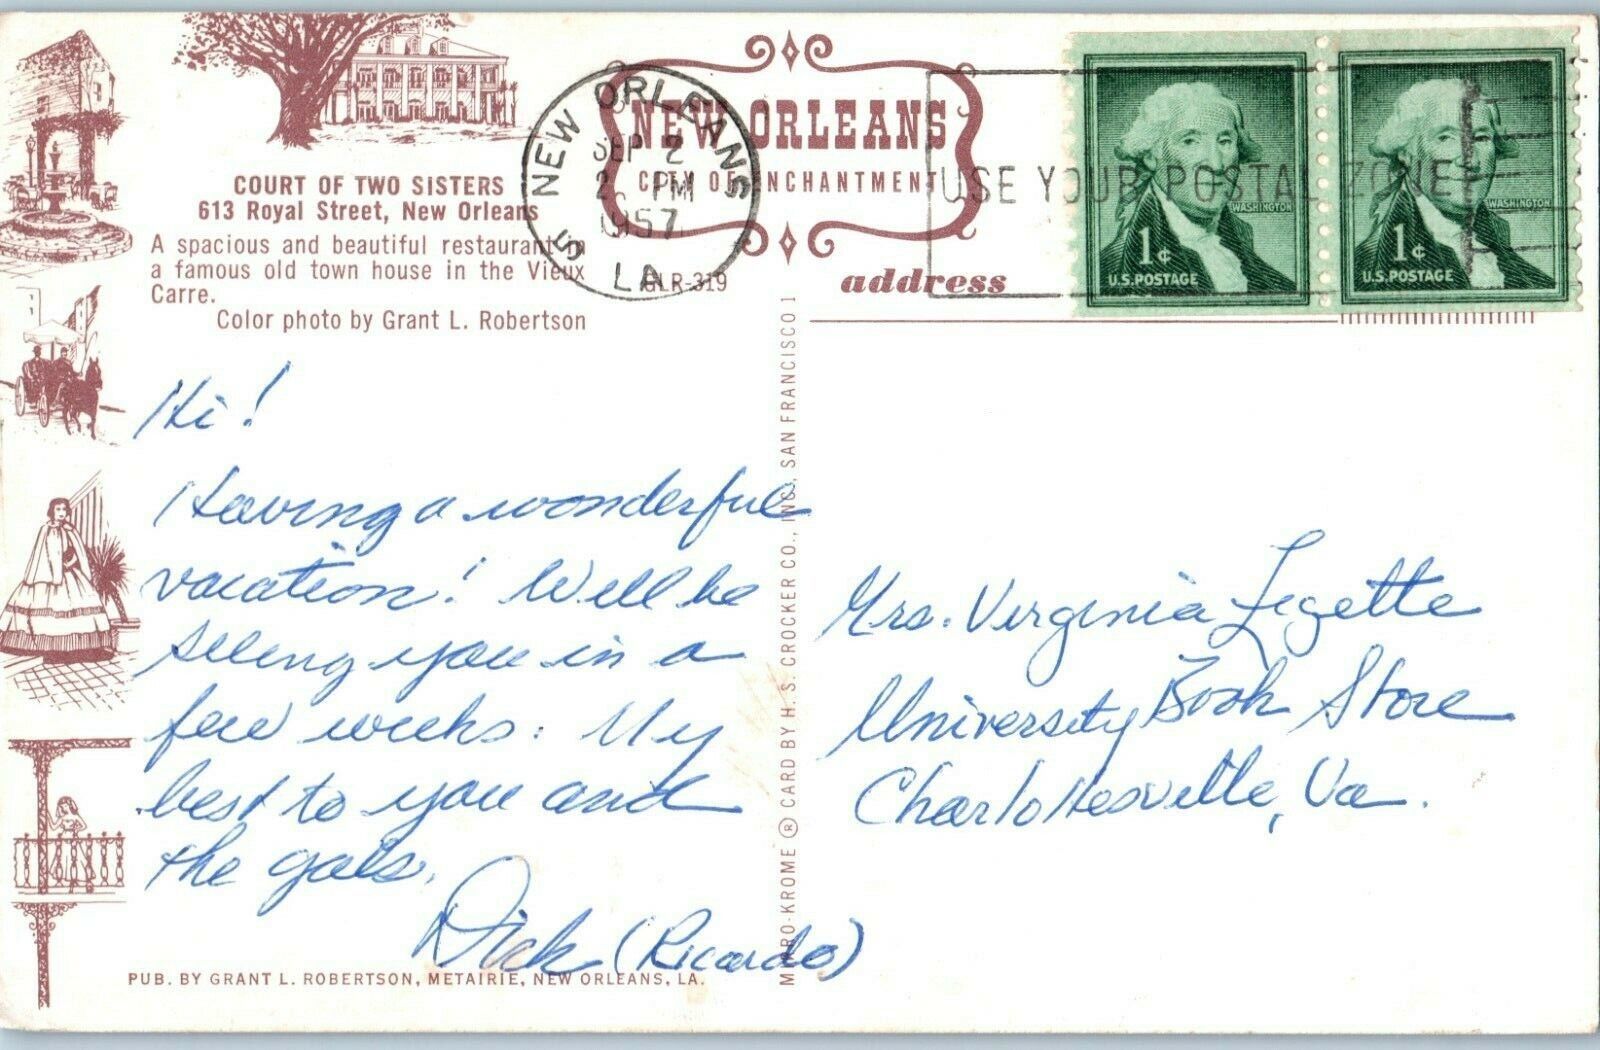 COURT OF TWO SISTERS
613 Royal Street, New Orleans
A spacious and beautiful restaurant in
a famous old town house in the Vieux
Carre.
Color photo by Grant L. Robertson
NEW ORLEANS
CITY OF ENCHANTMENT
GLR-319
NEW ORLEANS
SEP 2
PM
1957
5
LA
USE YOUR POSTAL ZONE
1¢
U.S. POSTAGE
WASHINGTON
1¢
U.S. POSTAGE
WASHINGTON
address
Hi!
Having a wonderful
vacation! Will be
seeing you in a
few weeks. My
best to you and
the gals.
Dick (Ricardo)
PUB. BY GRANT L. ROBERTSON, METAIRIE, NEW ORLEANS, LA.
MIRRO-KROME ® CARD BY H. S. CROCKER CO., INC., SAN FRANCISCO 1
Mrs. Virginia Legette
University Book Store
Charlottesville, Va.